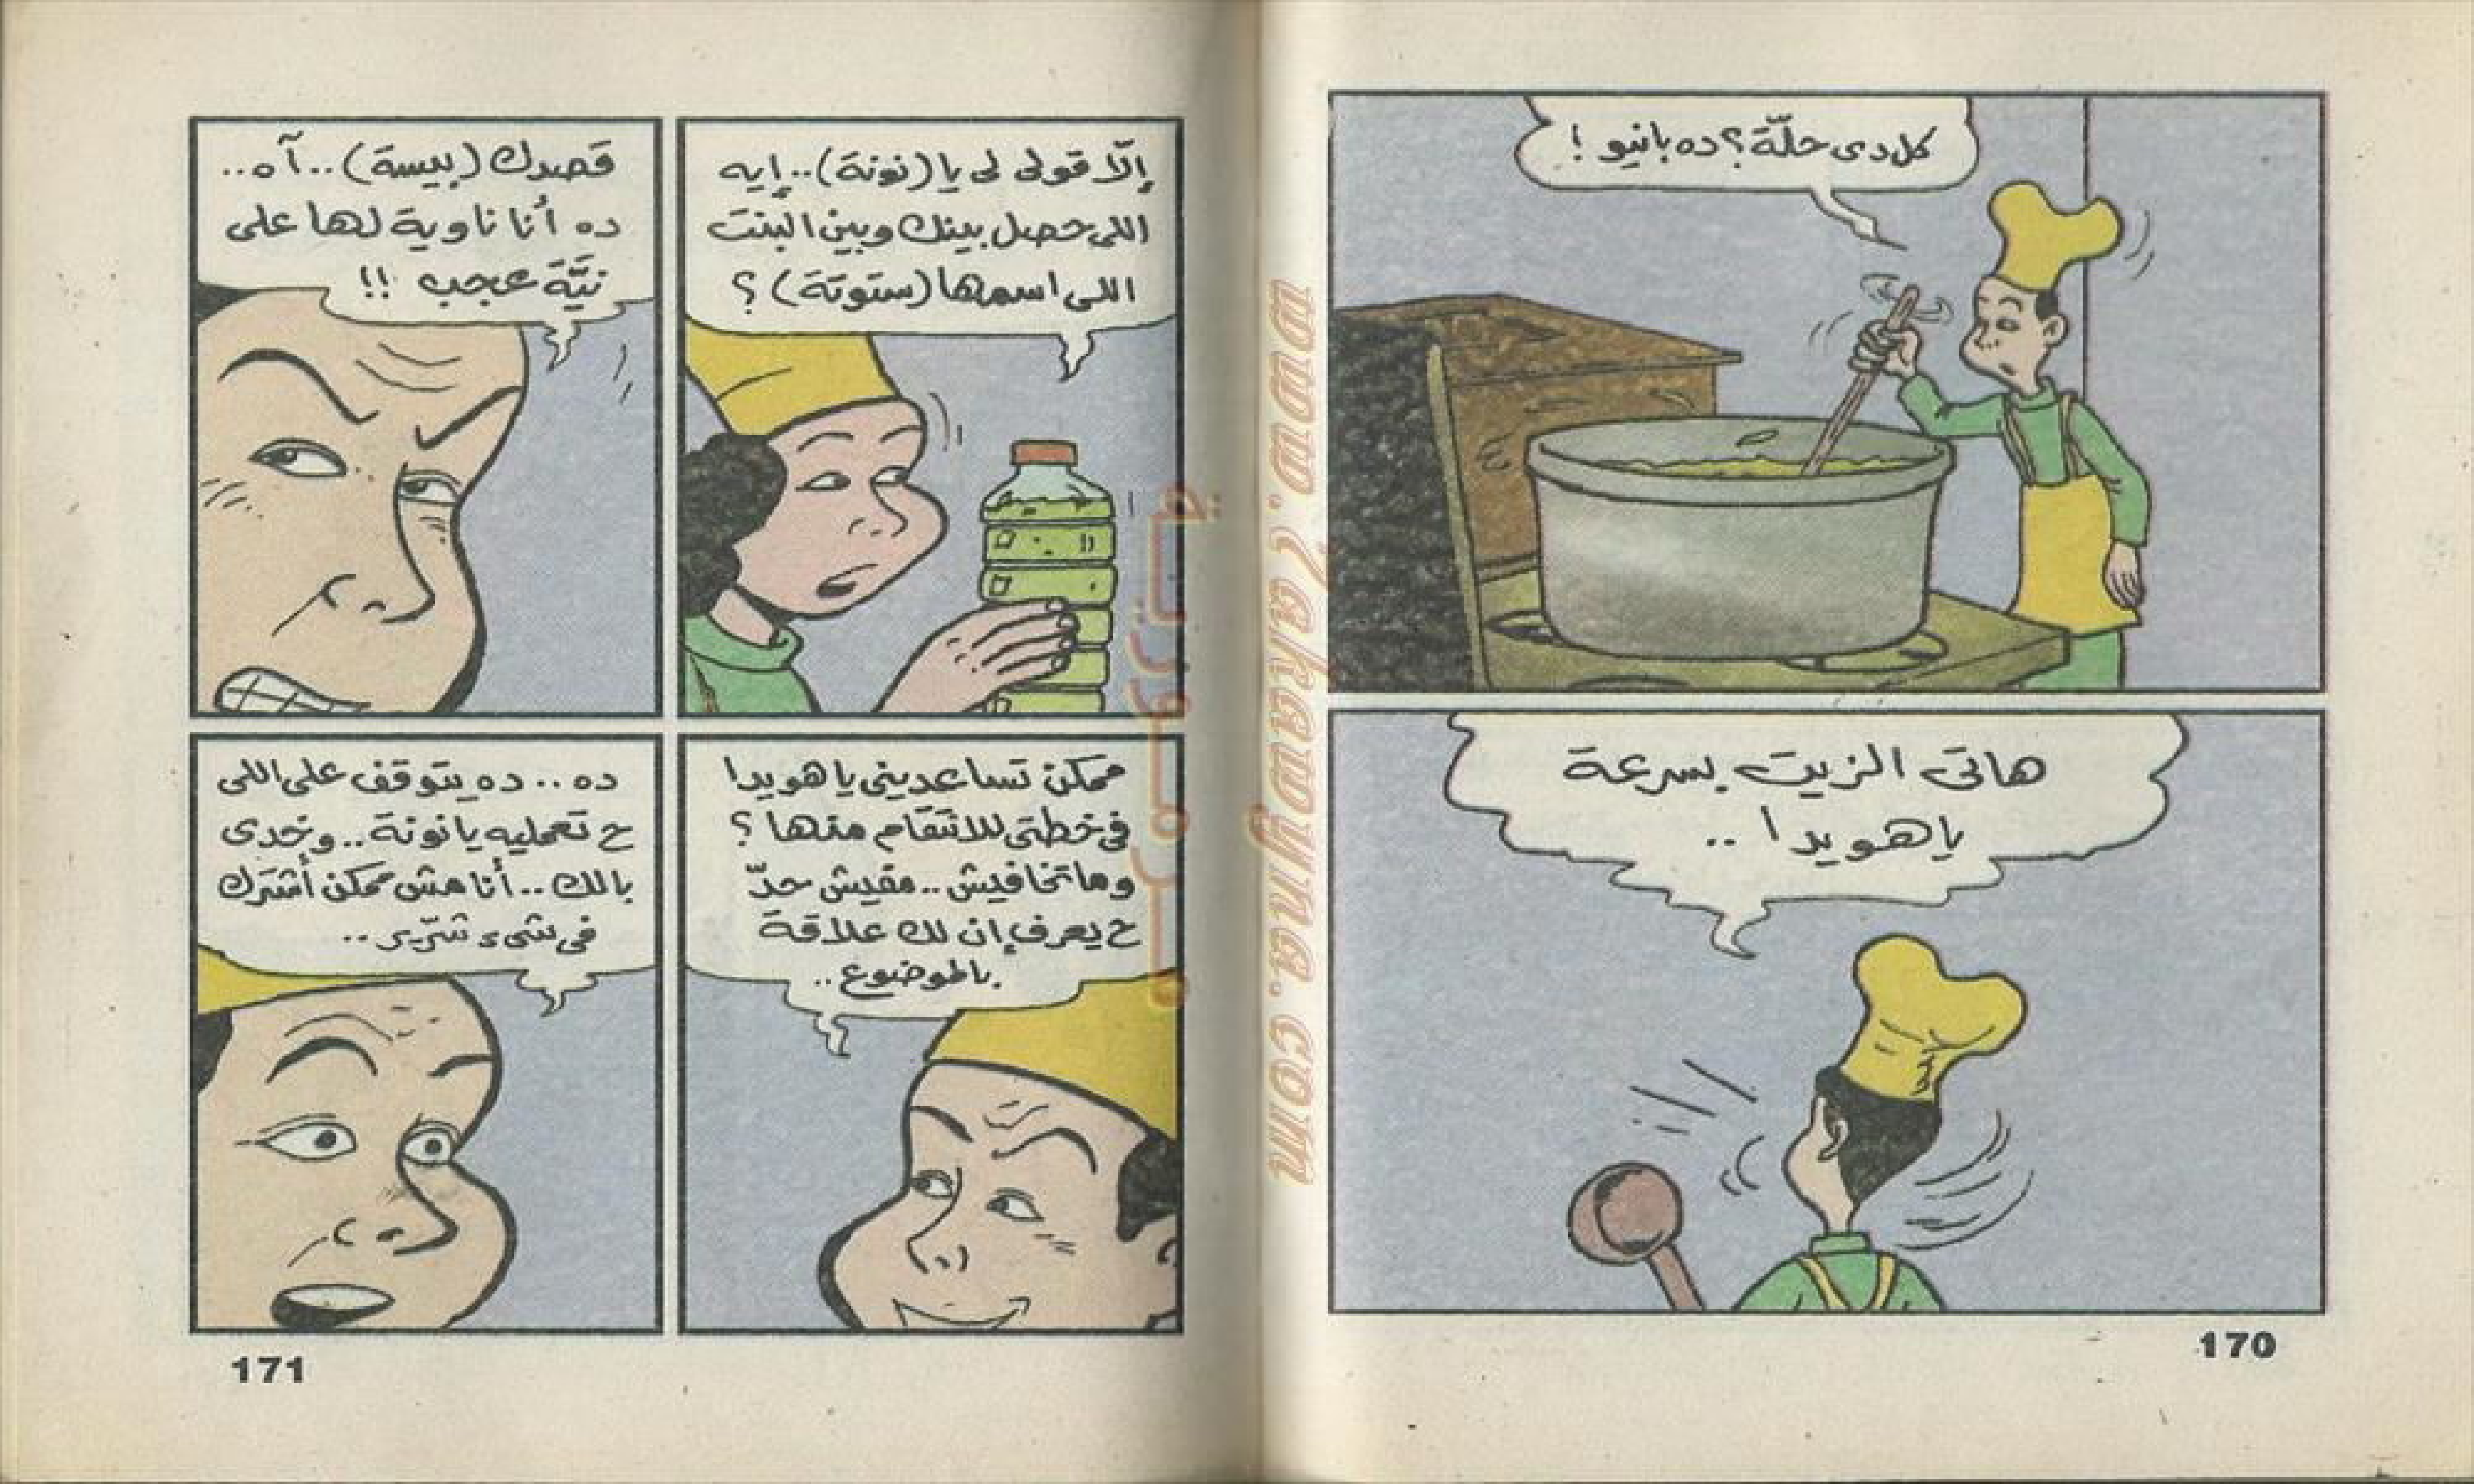 كل دى حلّة؟ ده بانيو !
هاتى الزيت بسرعة
يا هويدا ..
170
إلّا قولى لى يا (نونة).. إيه
اللى حصل بينك وبين البنت
اللى اسمها (ستوتة) ؟
قصدك (بيسة).. آه..
ده أنا ناوية لها على
نيَّة عجب !!
ممكن تساعدينى يا هويدا
فى خطتى للانتقام منها ؟
وماتخافيش .. مفيش حدّ
ح يعرف إن لك علاقة
بالموضوع ..
ده .. ده يتوقف على اللى
ح تعمليه يا نونة .. وخدى
بالك .. أنا مش ممكن أشترك
فى شىء شرّير ..
171
www.7akawyna.com